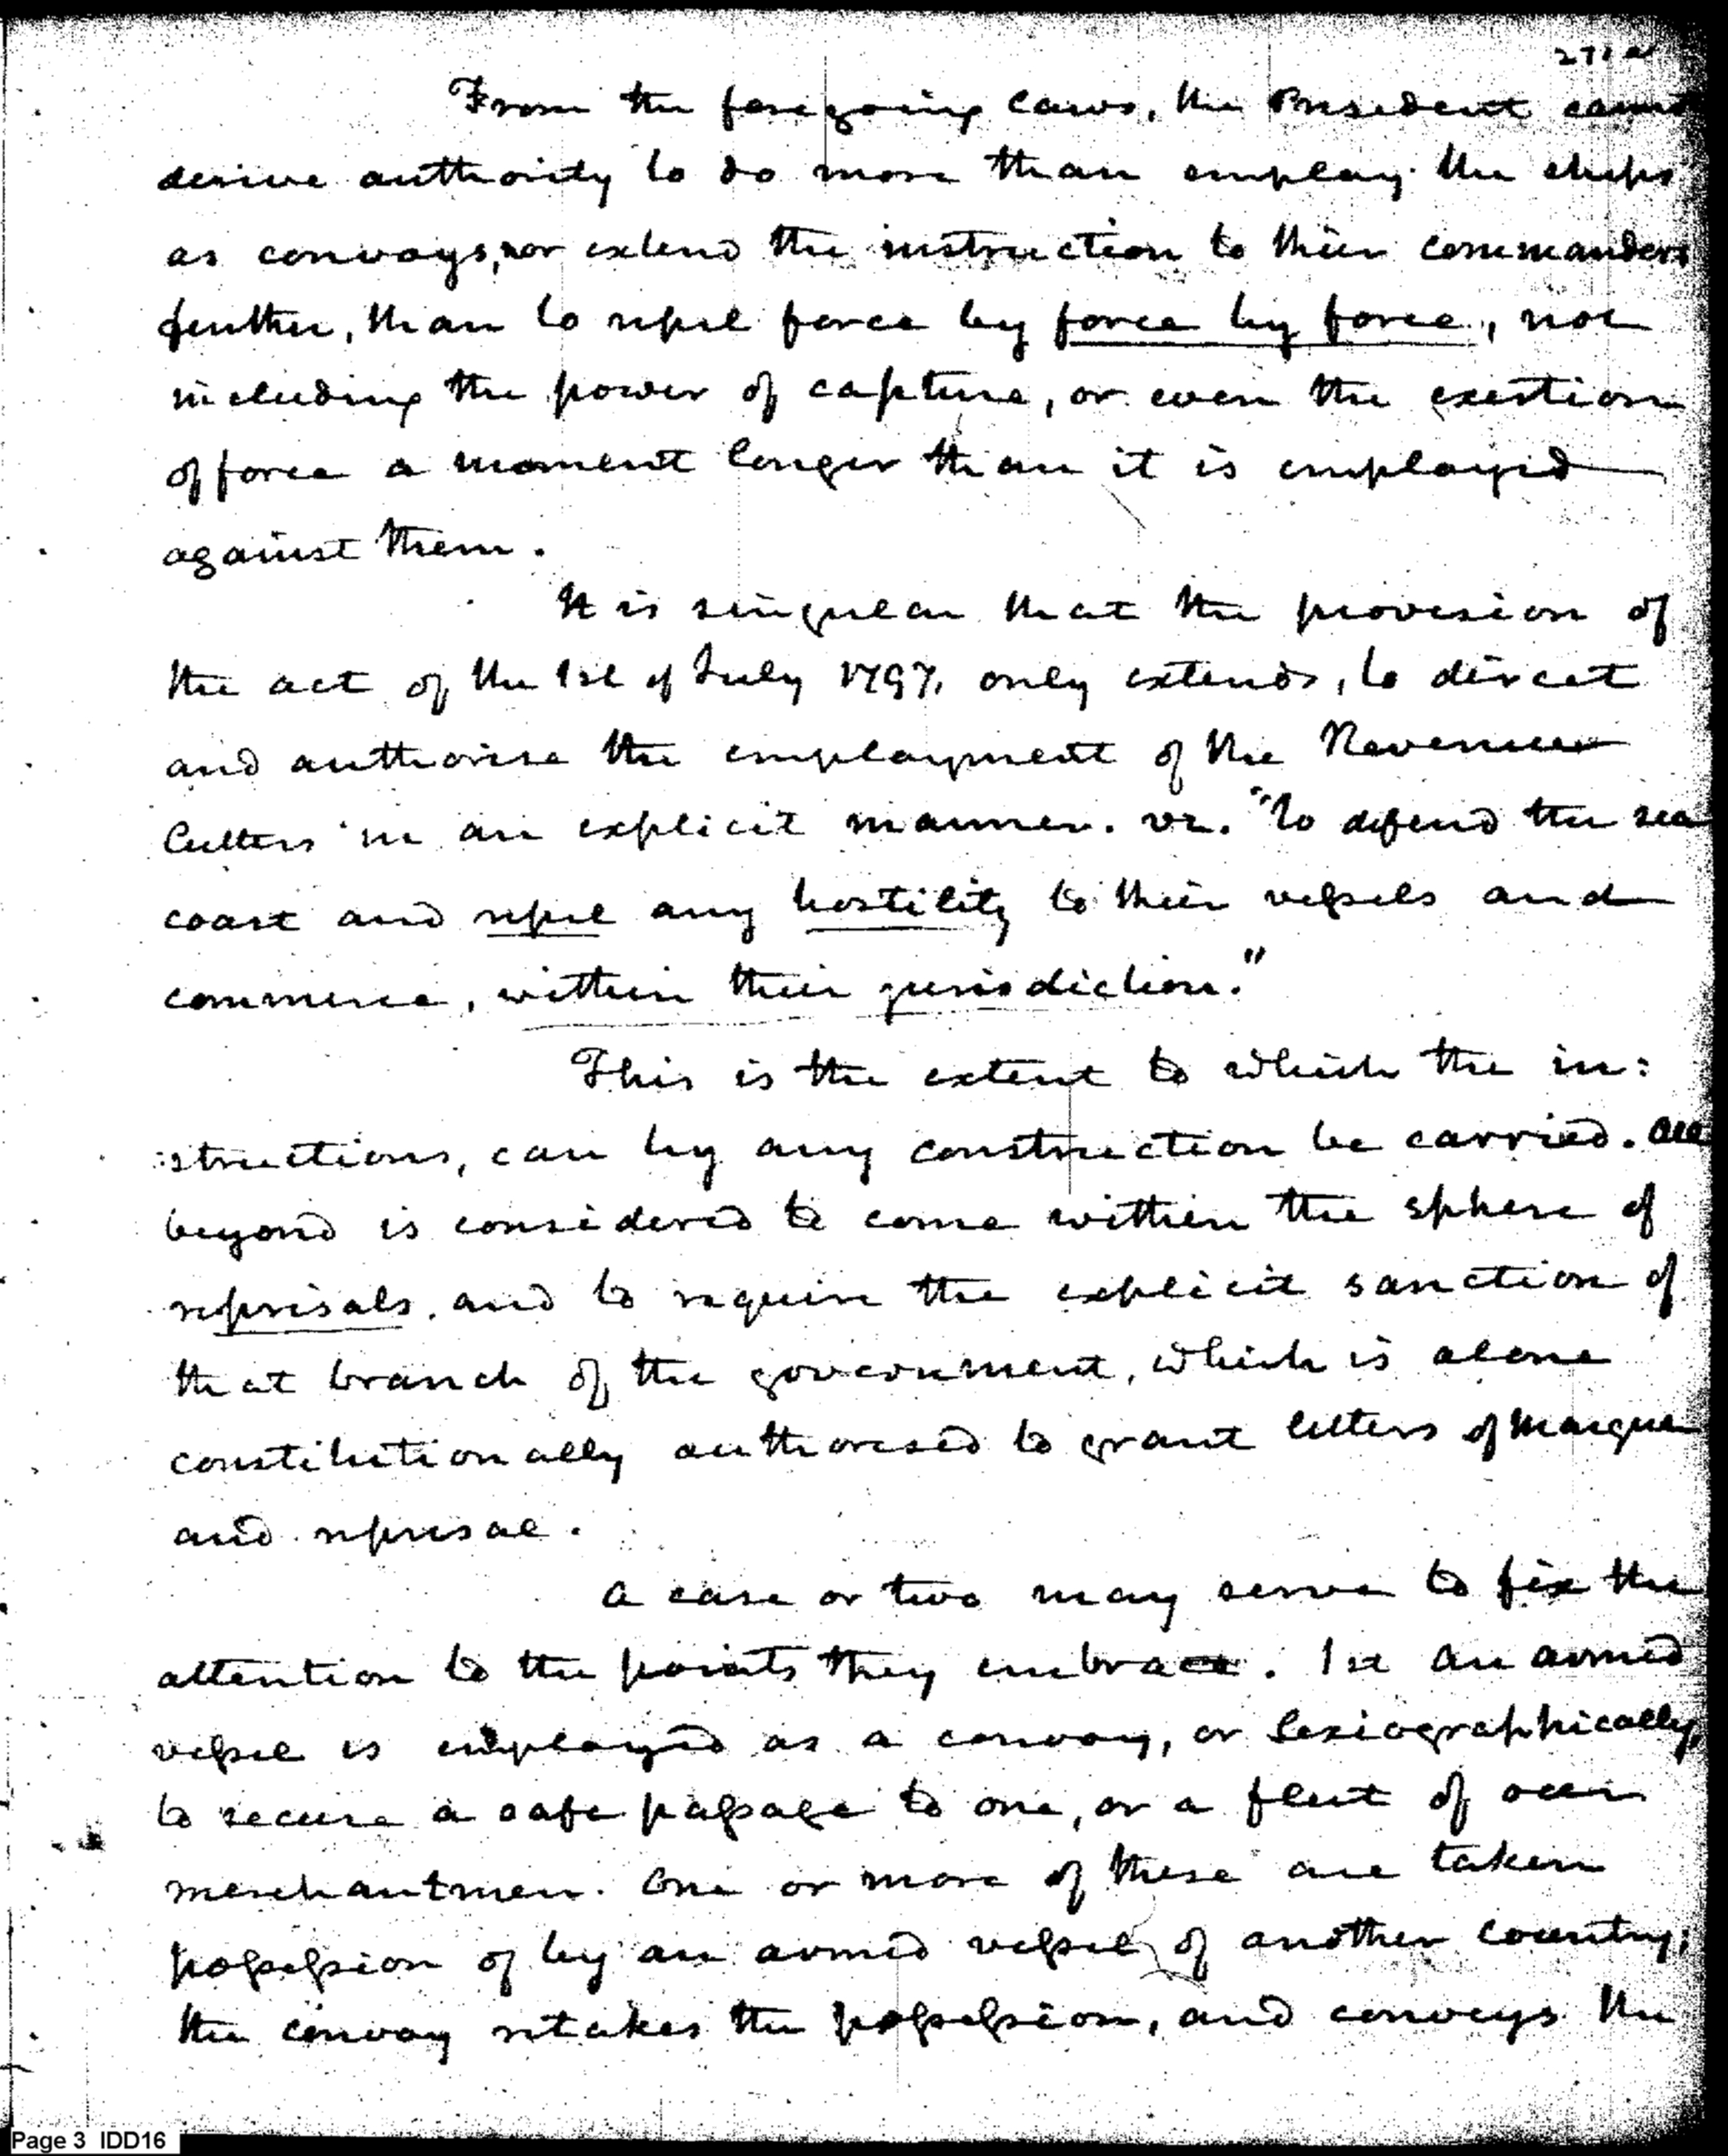 271 a
From the foregoing Laws, the President cannot
derive authority to do more than employ the ships
as convoys, nor extend the instruction to their commanders
further, than to repel force by force by force, not
including the power of capture, or even the exertion
of force a moment longer than it is employed
against them.
It is singular that the provision of
the act of the 1st of July 1797, only extends, to direct
and authorise the employment of the Revenue
Cutters in an explicit manner. vz. "to defend the sea
coast and repel any hostility to their vessels and
commerce, within their jurisdiction."
This is the extent to which the in:
:structions, can by any construction be carried. All
beyond is considered to come within the sphere of
reprisals, and to require the explicit sanction of
that branch of the government, which is alone
constitutionally authorised to grant letters of Marque
and reprisal.
A case or two may serve to fix the
attention to the points they embrace. 1st An armed
vessel is employed as a convoy, or Lexiographically,
to secure a safe passage to one, or a fleet of our
merchantmen. One or more of these are taken
possession of by an armed vessel of another Country;
the convoy retakes the possession, and conveys the
Page 3 IDD16